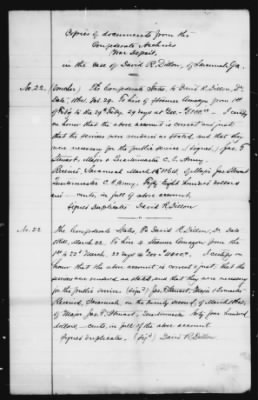 Copies of documents from the
Confederate Archives
War Depart.
in the case of David R. Dillon, of Savannah, Ga.
No. 22. (Voucher) The Confederate States to David R. Dillon, Dr.
Date, 1864. Feb. 29. To hire of steamer from 1st
of Feby to the 29th Feby, 29 days at I certify
on honor that the above account is correct and just
that the services were rendered as stated, and that they
were necessary for the public service (signed) Jas. F.
Stuart, Major & Quartermaster C. S. Army.
Received, Savannah March 1864, of Major Jas Stuart
Quartermaster C. S. Army, Fifty Eight hundred dollars
and cents, in full of above account.
Signed Duplicates David R. Dillon
No. 22 The Confederate States, To David R. Dillon, Dr. Date
1864, March 22. To hire of Steamer from the
1st to 22d March, 22 days @ I certify on
honor that the above account is correct & just, that the
services were rendered as stated, and that they were necessary
for the public service (sign'd) Jas. F. Stuart, Major &
Received, Savannah, on the twenty second of March 1864,
of Major Jas. F. Stuart, Quartermaster forty four hundred
dollars — cents, in full of the above account
Signed duplicates, (sig'd) David R. Dillon